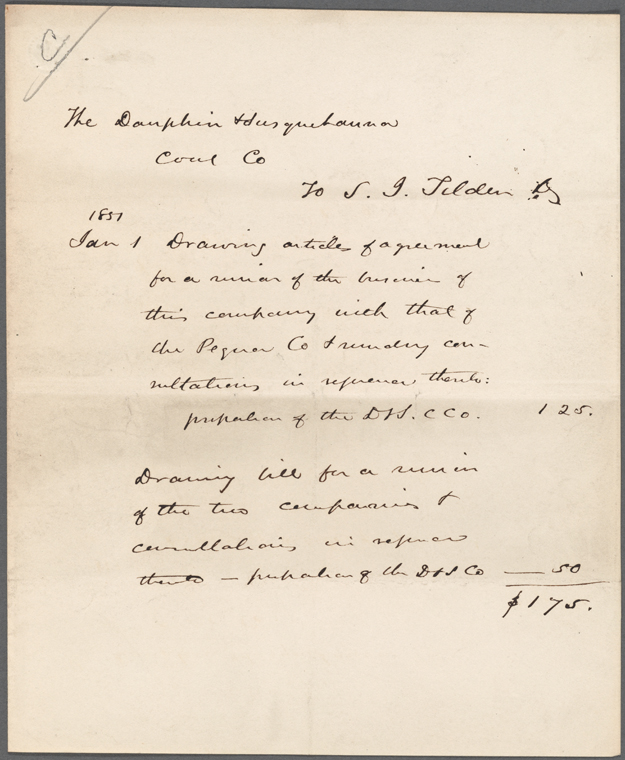 C
The Dauphin & Susquehanna
Coal Co
To S. J. Tilden Dr
1851
Jan 1 Drawing articles of agreement
for a union of the business of
this company with that of
the Pequa Co & sundry con-
sultations in reference thereto:
proportion of the D & S. C Co. 125.
Drawing bill for a union
of the two companies &
consultations in reference
thereto — proportion of the D & S Co — 50
$175.